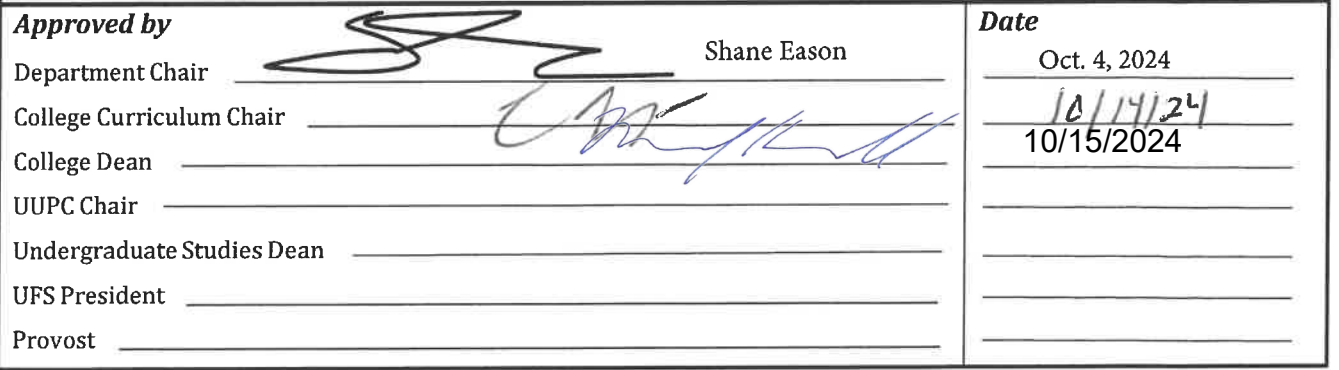 Approved by Date
Department Chair Shane Eason Oct. 4, 2024
College Curriculum Chair 10/14/24
College Dean 10/15/2024
UUPC Chair
Undergraduate Studies Dean
UFS President
Provost